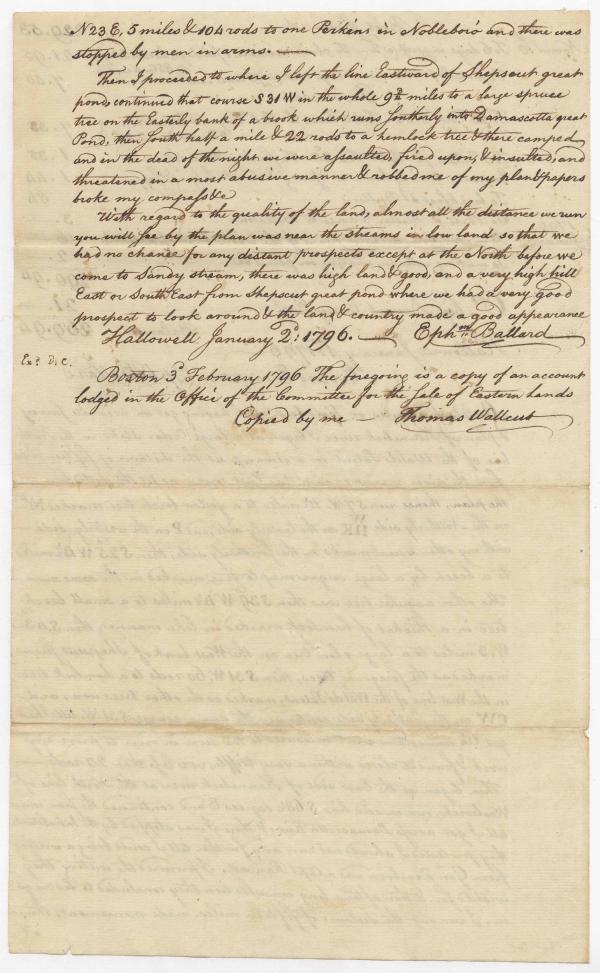 N 23 E, 5 miles & 104 rods to one Perkins in Nobleboro and there was
stopped by men in arms. —
Then I proceeded to where I left the line Eastward of Shepscut great
pond, continued that course S 31 W in the whole miles to a large spruce
tree on the Easterly bank of a brook which runs Southerly into Damascotta great
Pond, then South half a mile & 22 rods to a hemlock tree & there camped
and in the dead of the night we were assaulted, fired upon, & insulted, and
threatened in a most abusive manner & robbed me of my plan & papers
broke my compass &c
With regard to the quality of the land, almost all the distance we run
you will see by the plan was near the streams in low land so that we
had no chance for any distant prospects except at the North before we
come to Sandy stream, there was high land & good, and a very high hill
East or South East from Shepscut great pond where we had a very good
prospect to look around & the land & country made a good appearance
Hallowell, January 2d: 1796. — Ephm: Ballard
Exd D: C.
Boston 3d February 1796 The foregoing is a copy of an account
lodged in the Office of the Committee for the Sale of Eastern Lands
Copied by me — Thomas Wallcut